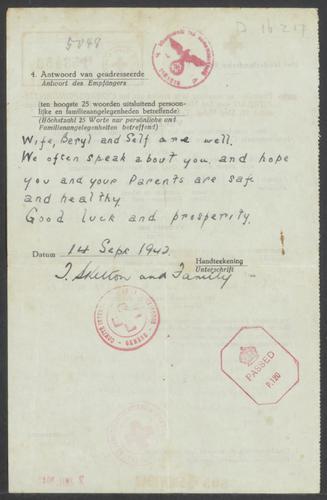 5048
D 16217
4. Antwoord van geadresseerde
Antwort des Empfängers
(ten hoogste 25 woorden uitsluitend persoon-
lijke en familieaangelegenheden betreffende)
(Höchstzahl 25 Worte nur persönliche und
Familienangelegenheiten betreffend)
Wife, Beryl and Self are well.
We often speak about you, and hope
you and your Parents are safe
and healthy
Good luck and prosperity.
Datum 14 Sept 1942
Handteekening
Unterschrift
J. Skelton and Family
GENÈVE
PASSED
P.120